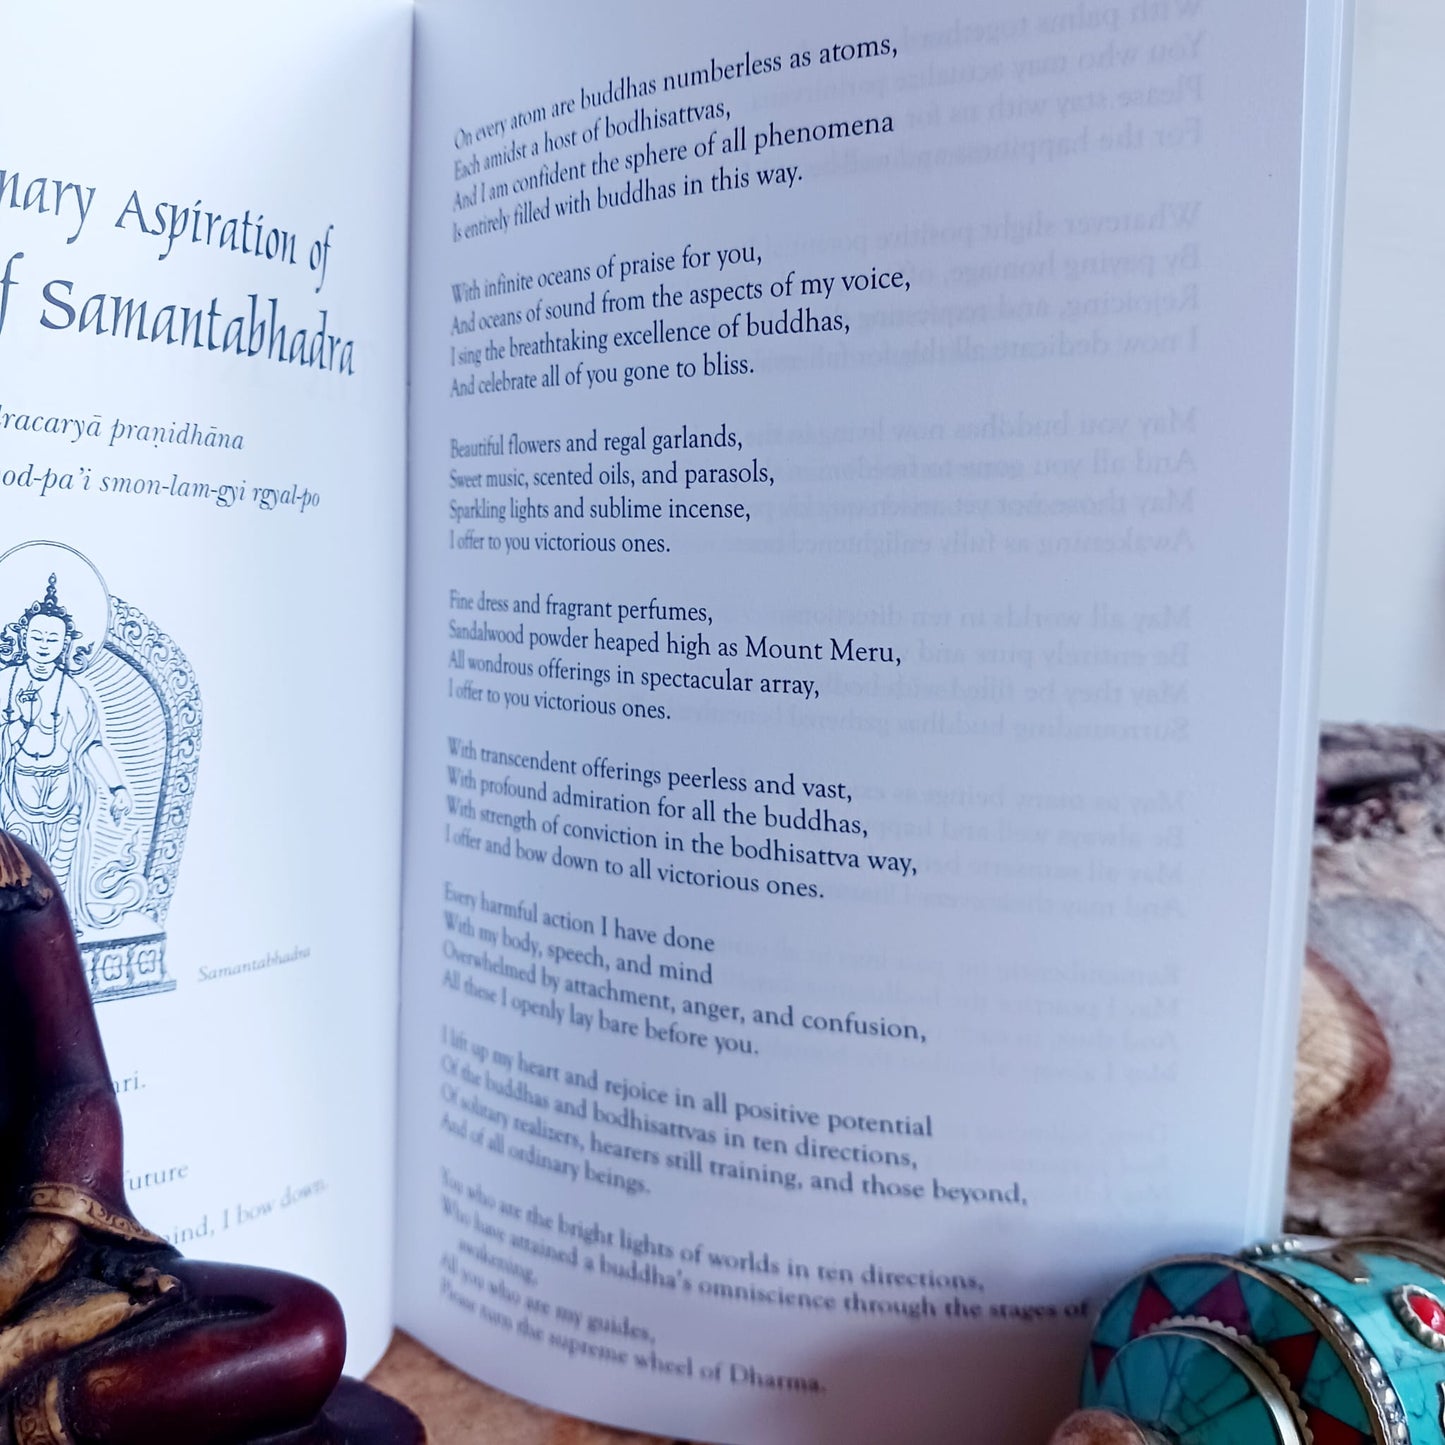 nary Aspiration of
f Samantabhadra
racaryā praṇidhāna
od-pa'i smon-lam-gyi rgyal-po
Samantabhadra
ri.
uture
ind, I bow down.
On every atom are buddhas numberless as atoms,
Each amidst a host of bodhisattvas,
And I am confident the sphere of all phenomena
Is entirely filled with buddhas in this way.
With infinite oceans of praise for you,
And oceans of sound from the aspects of my voice,
I sing the breathtaking excellence of buddhas,
And celebrate all of you gone to bliss.
Beautiful flowers and regal garlands,
Sweet music, scented oils, and parasols,
Sparkling lights and sublime incense,
I offer to you victorious ones.
Fine dress and fragrant perfumes,
Sandalwood powder heaped high as Mount Meru,
All wondrous offerings in spectacular array,
I offer to you victorious ones.
With transcendent offerings peerless and vast,
With profound admiration for all the buddhas,
With strength of conviction in the bodhisattva way,
I offer and bow down to all victorious ones.
Every harmful action I have done
With my body, speech, and mind
Overwhelmed by attachment, anger, and confusion,
All these I openly lay bare before you.
I lift up my heart and rejoice in all positive potential
Of the buddhas and bodhisattvas in ten directions,
Of solitary realizers, hearers still training, and those beyond,
And of all ordinary beings.
You who are the bright lights of worlds in ten directions,
Who have attained a buddha's omniscience through the stages of
awakening,
All you who are my guides,
Please turn the supreme wheel of Dharma.